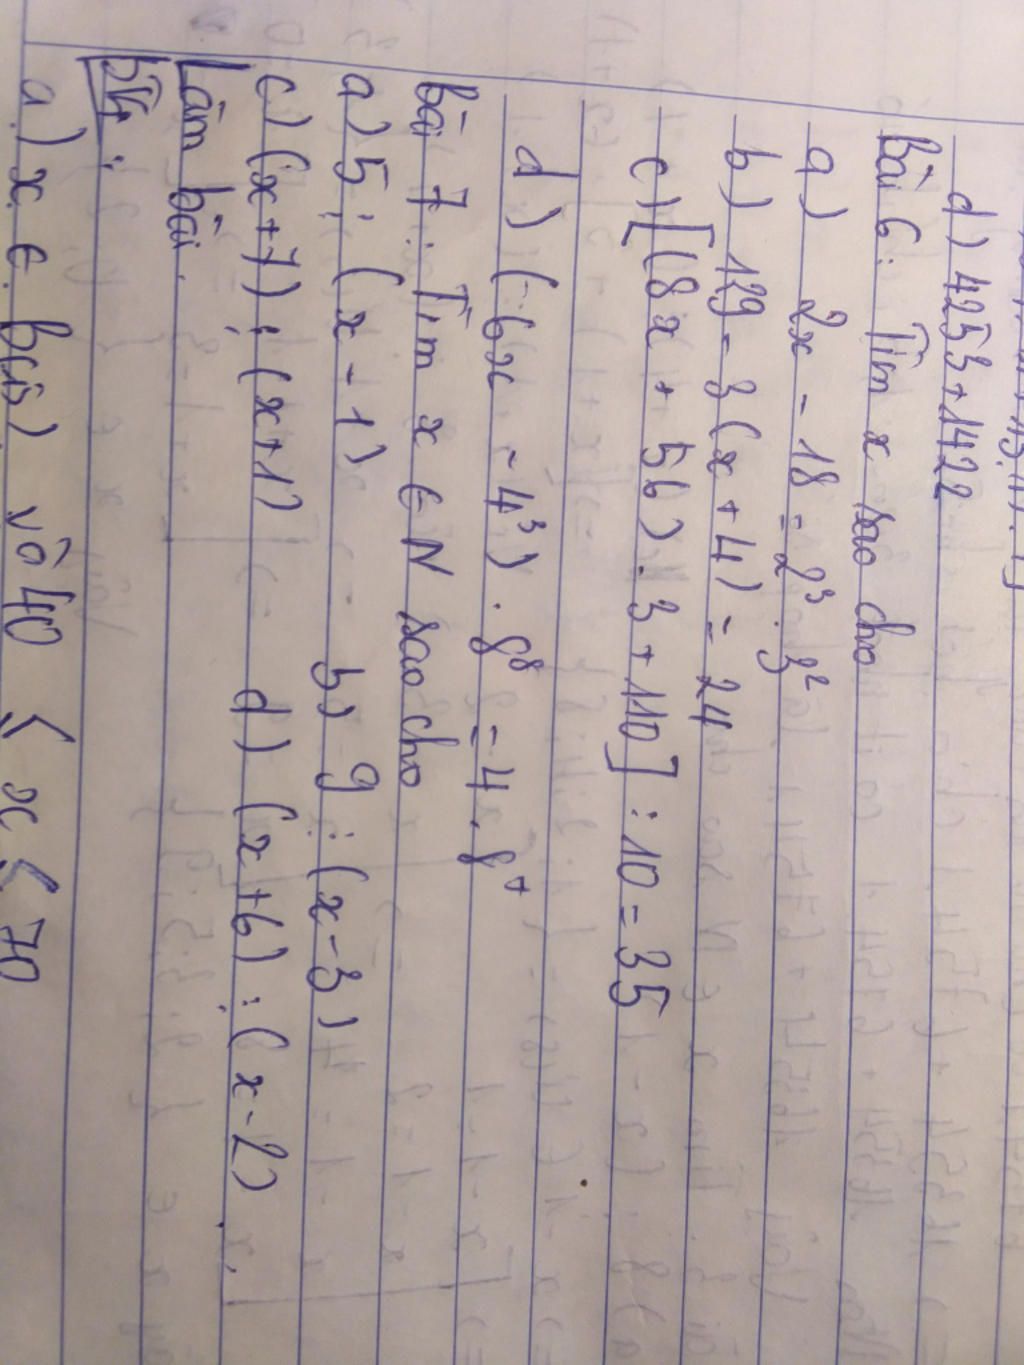 d) 4253 + 1422
Bài 6: Tìm x sao cho
a) 2x - 18 = 2³ . 3²
b) 129 - 3(x + 4) = 24
c) [(8x + 56) . 3 + 110] : 10 = 35
d) (6x - 4³) . 8⁸ = 4 . 8⁺
bài 7: Tìm x ∈ N sao cho
a) 5 ⋮ (x - 1) b) 9 ⋮ (x - 3)
c) (x + 7) ⋮ (x + 1) d) (x + 6) ⋮ (x - 2)
Làm bài.
b4:
a) x ∈ b(15) và 40 ≤ x ≤ 70